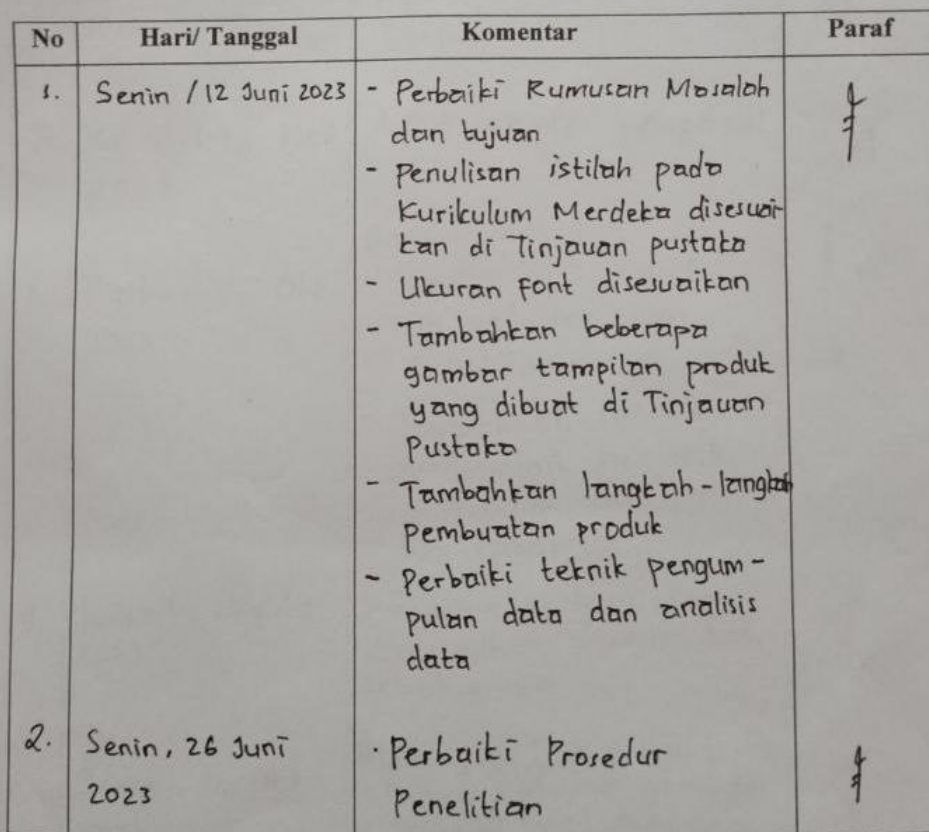 No Hari/ Tanggal Komentar Paraf
1. Senin / 12 Juni 2023 - Perbaiki Rumusan Masalah
dan tujuan
- Penulisan istilah pada
Kurikulum Merdeka disesuai-
kan di Tinjauan pustaka
- Ukuran font disesuaikan
- Tambahkan beberapa
gambar tampilan produk
yang dibuat di Tinjauan
Pustaka
- Tambahkan langkah-langkah
pembuatan produk
- Perbaiki teknik pengum-
pulan data dan analisis
data
2. Senin, 26 Juni · Perbaiki Prosedur
2023 Penelitian